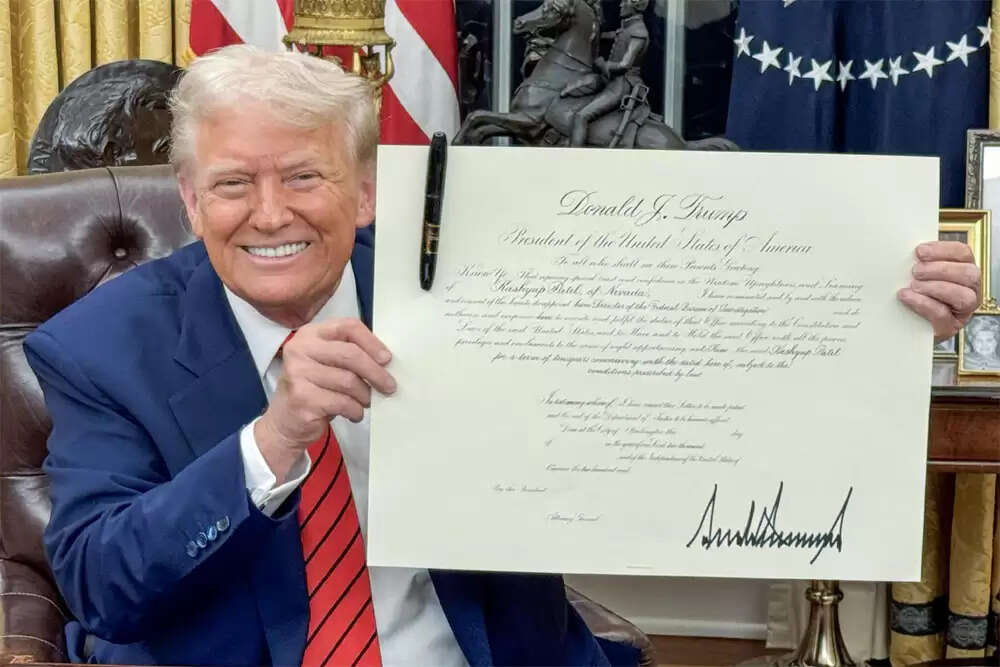 Donald J. Trump
President of the United States of America
To all who shall see these Presents Greeting
Know Ye, That reposing special trust and confidence in the
of Kashyap Patel, of Nevada, I have nominated, and by and with the advice
and consent of the Senate do appoint him Director of the Federal Bureau of Investigation and do
authorize and empower him to execute and fulfil the duties of that Office according to the Constitution and
Laws of the said United States, and to Have and to Hold the said Office with all the powers
privileges and emoluments to the same of right appertaining, unto Him the said Kashyap Patel
for a term of
conditions prescribed by law
In testimony whereof, I have caused these Letters to be made patent
and the seal of the Department of Justice to be hereunto affixed
Done at the City of Washington this day
of in the year of our Lord two thousand
and of the Independence of the United States of
America the two hundred and
By the President
Attorney General